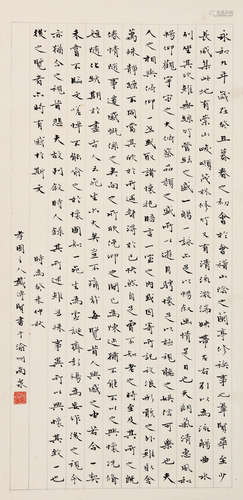 永和九年歲在癸丑暮春之初會於會稽山陰之蘭亭脩禊事也羣賢畢至少
長咸集此地有崇山峻領茂林脩竹又有清流激湍映帶左右引以為流觴曲水
列坐其次雖無絲竹管弦之盛一觴一詠亦足以暢敘幽情是日也天朗氣清惠風和
暢仰觀宇宙之大俯察品類之盛所以遊目騁懷足以極視聽之娛信可樂也夫
人之相與俯仰一世或取諸懷抱晤言一室之內或因寄所託放浪形骸之外雖趣舍
萬殊靜躁不同當其欣於所遇暫得於己快然自足不知老之將至及其所之既
惓情隨事遷感慨係之矣向之所欣俛仰之間已為陳迹猶不能不以之興懷況脩
短隨化終期於盡古人云死生亦大矣豈不痛哉每覽昔人興感之由若合一契
未嘗不臨文嗟悼不能喻之於懷固知一死生為虛誕齊彭殤為妄作後之視今
亦猶今之視昔悲夫故列敘時人錄其所述雖世殊事異所以興懷其致一也
後之覽者亦將有感於斯文
時為癸未仲秋